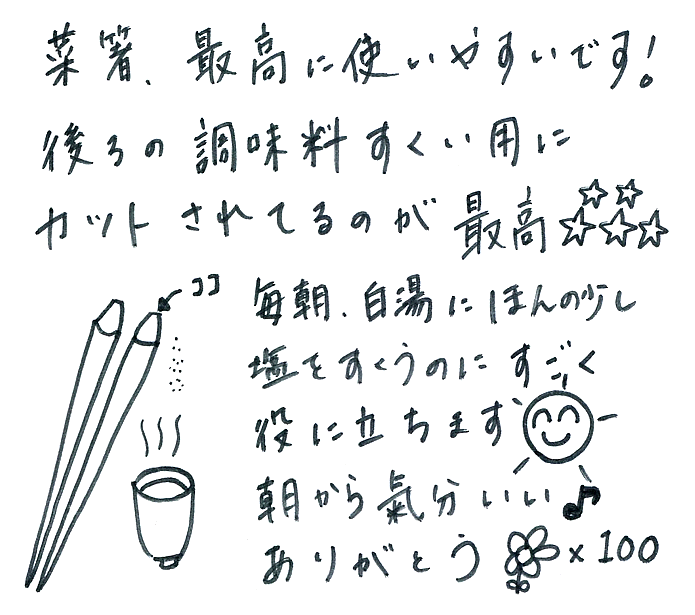 菜箸、最高に使いやすいです!
後ろの調味料すくい用に
カットされてるのが最高☆☆☆☆☆
ココ
毎朝、白湯にほんの少し
塩をすくうのにすごく
役に立ちます
朝から氣分いい♪
ありがとう ×100